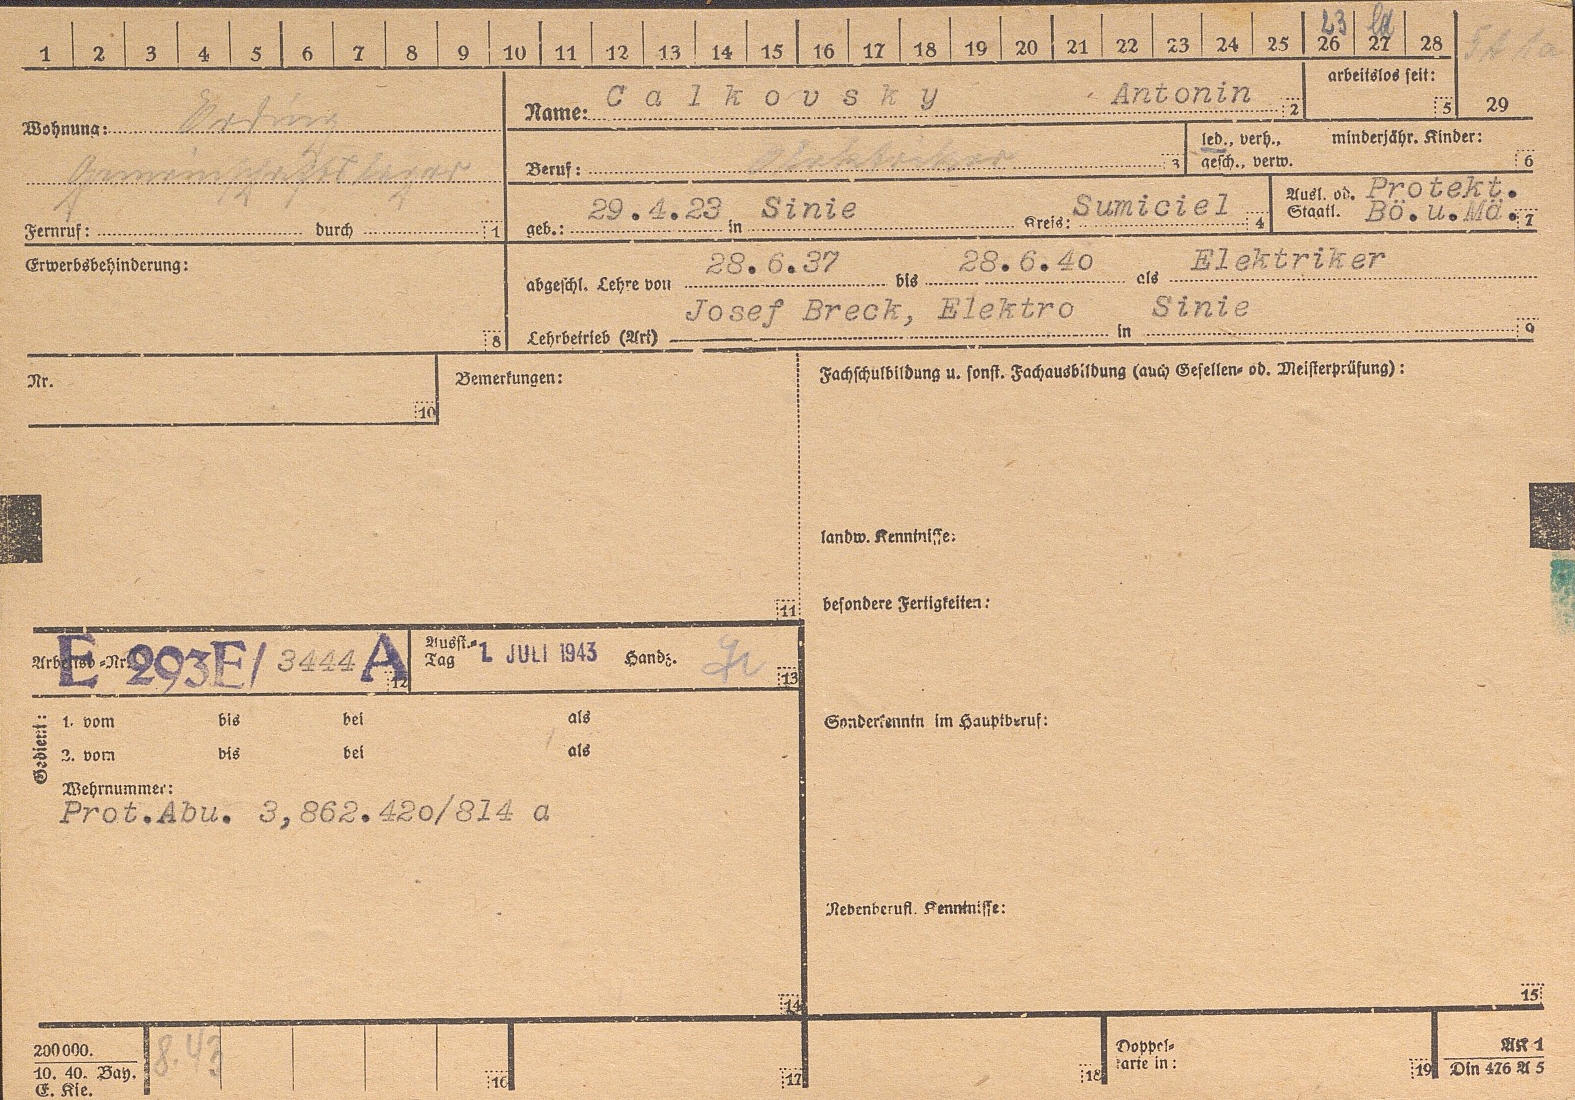 1 2 3 4 5 6 7 8 9 10 11 12 13 14 15 16 17 18 19 20 21 22 23 24 25 26 27 28 29
23 ld
Wohnung: Erding
Gemeinschaftslager
Fernruf: durch 1
Name: Calkovsky Antonin 2
arbeitslos seit: 5
Beruf: Elektriker 3
led., verh., minderjähr. Kinder:
gesch., verw. 6
geb.: 29.4.23 in Sinie Kreis: Sumiciel 4
Ausl. od. Protekt.
Staatl. Bö.u.Mä. 7
Erwerbsbehinderung:
8
abgeschl. Lehre von 28.6.37 bis 28.6.40 als Elektriker
Lehrbetrieb (Art) Josef Breck, Elektro in Sinie 9
Nr.
10
Bemerkungen:
11
Fachschulbildung u. sonst. Fachausbildung (auch Gesellen- od. Meisterprüfung):
landw. Kenntnisse:
besondere Fertigkeiten:
Sonderkenntn im Hauptberuf:
Nebenberufl. Kenntnisse:
15
Arbeitsb-Nr. E 293E/ 3444 A 12
Ausst.-
Tag 1. JULI 1943 Handz. 13
Gedient:
1. vom bis bei als
2. vom bis bei als
Wehrnummer:
Prot.Abu. 3,862.420/814 a
14
200000.
10. 40. Bay.
E. Kie.
8.43
16 17 18
Doppel-
karte in: 19
AK 1
Din 476 A 5